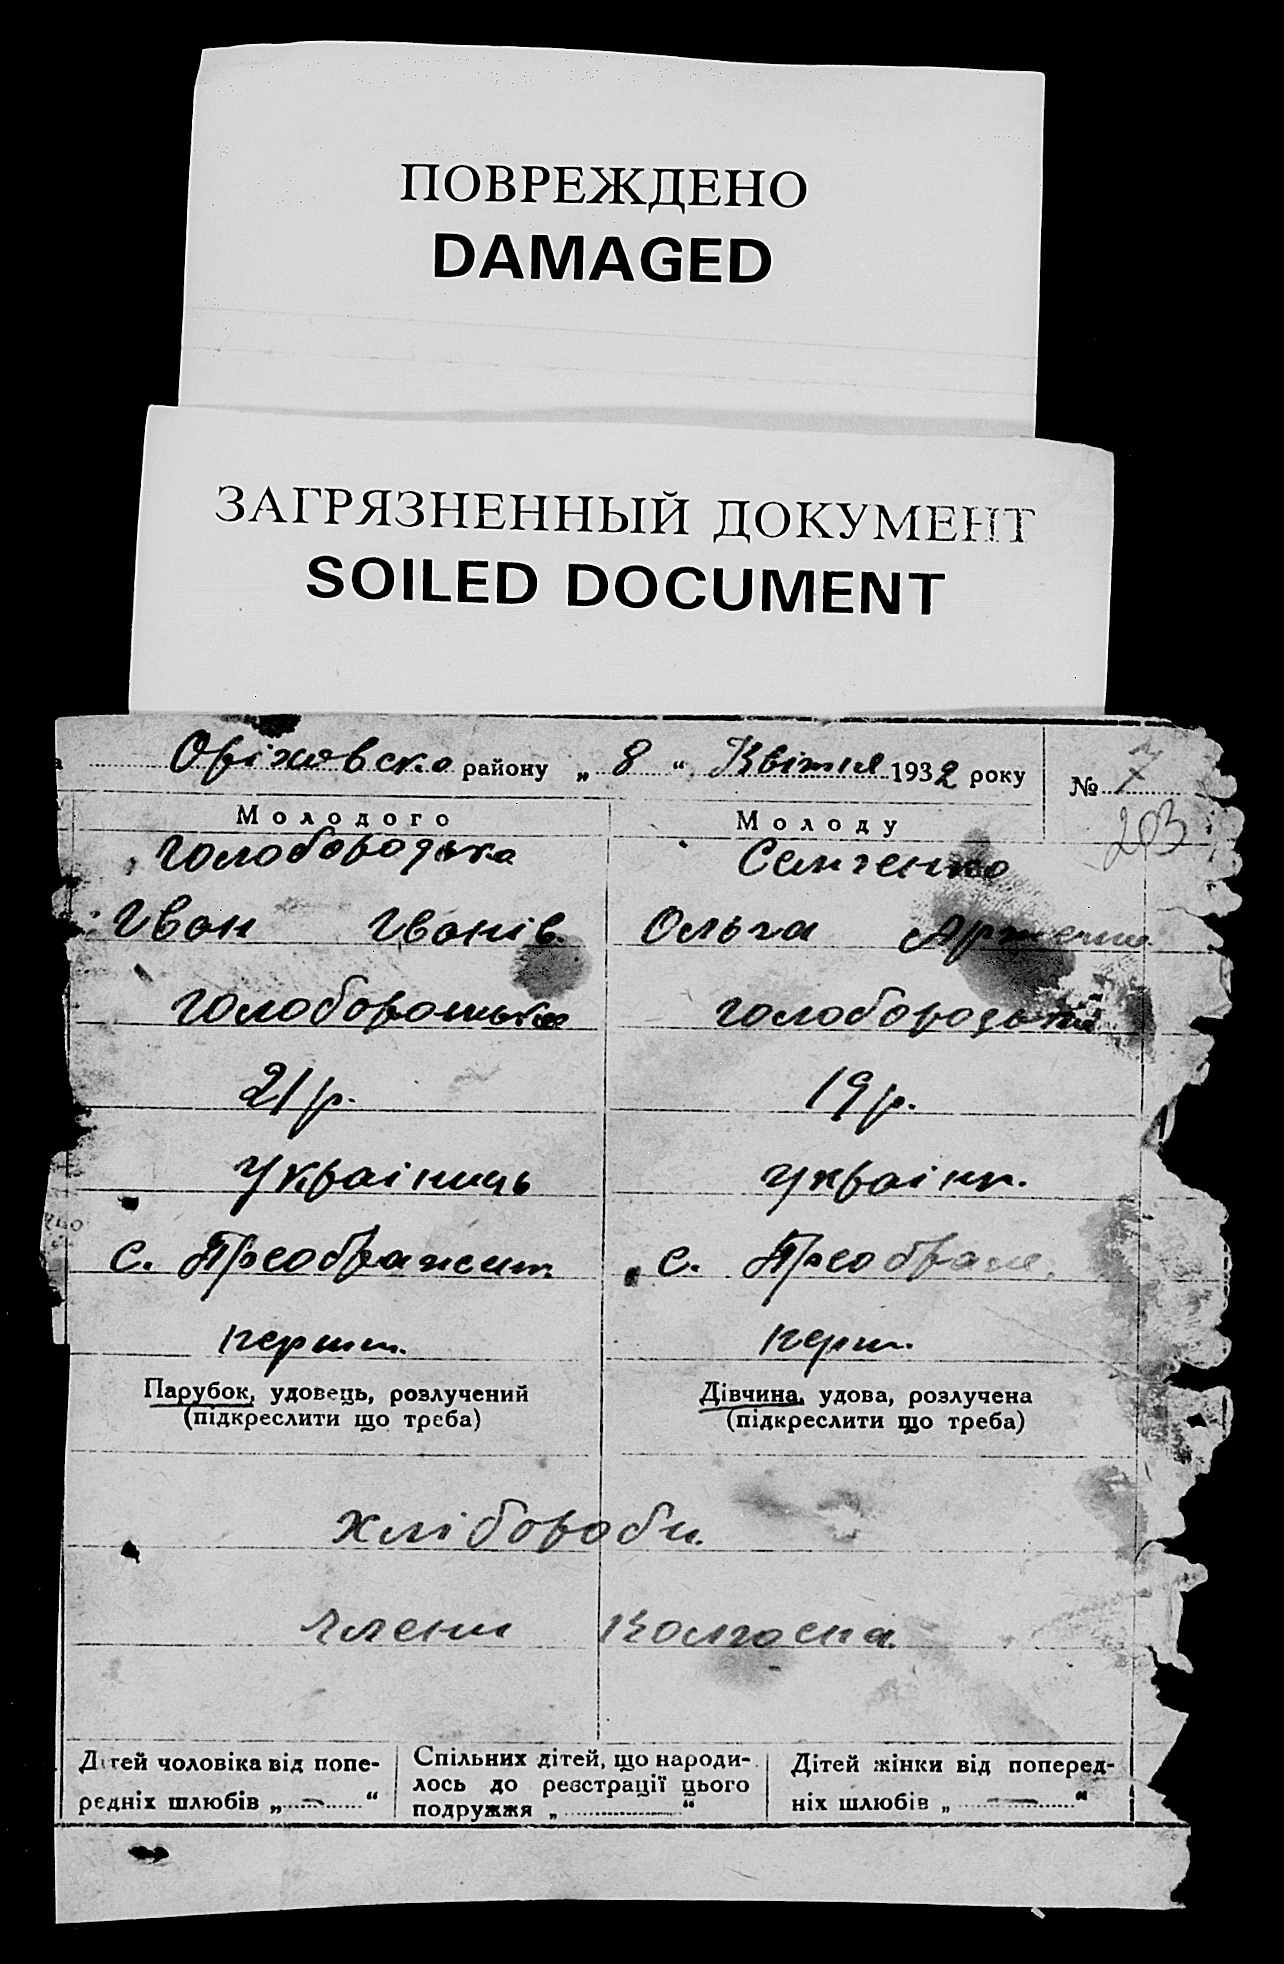 ПОВРЕЖДЕНО
DAMAGED
ЗАГРЯЗНЕННЫЙ ДОКУМЕНТ
SOILED DOCUMENT
Оріховско району „ 8 “ Квітня 1932 року
№ 7
203
Молодого Молоду
Голобородька Семченко
Іван Іванів. Ольга
Голобородько Голобородько
21 р. 19 р.
Українець Українк.
с. Преображен. с. Преображ.
перши. перш.
Парубок, удовець, розлучений Дівчина, удова, розлучена
(підкреслити що треба) (підкреслити що треба)
Хлібороби.
Члени Колгоспа.
Дітей чоловіка від попе- Спільних дітей, що народи- Дітей жінки від поперед-
редніх шлюбів „ — “ лось до реєстрації цього ніх шлюбів „ — “
подружжя „ “